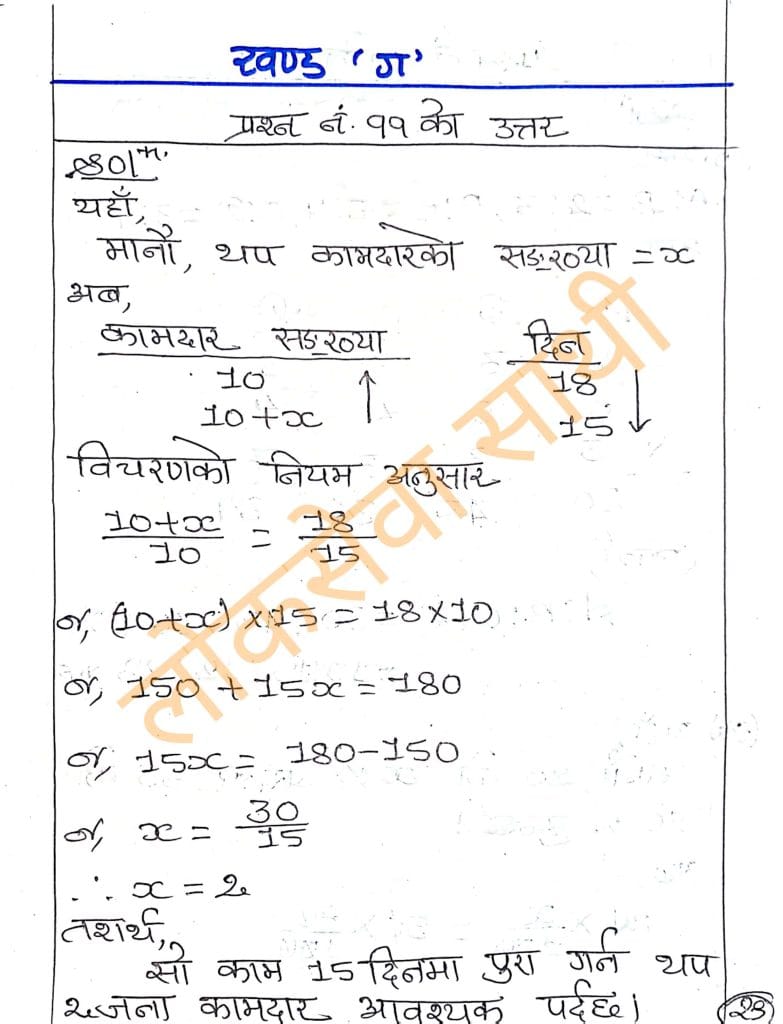 खण्ड 'ग'
प्रश्न नं. ११ को उत्तर
Solⁿ.
यहाँ,
मानौं, थप कामदारको सङ्ख्या = x
अब,
कामदार सङ्ख्या दिन
10 18
10+x 15
विचरणको नियम अनुसार
10+x/10 = 18/15
or, (10+x) × 15 = 18×10
or, 150 + 15x = 180
or, 15x = 180-150
or, x = 30/15
∴ x = 2
तशर्थ,
सो काम 15 दिनमा पुरा गर्न थप
2 जना कामदार आवश्यक पर्दछ।
लोकसेवा साथी